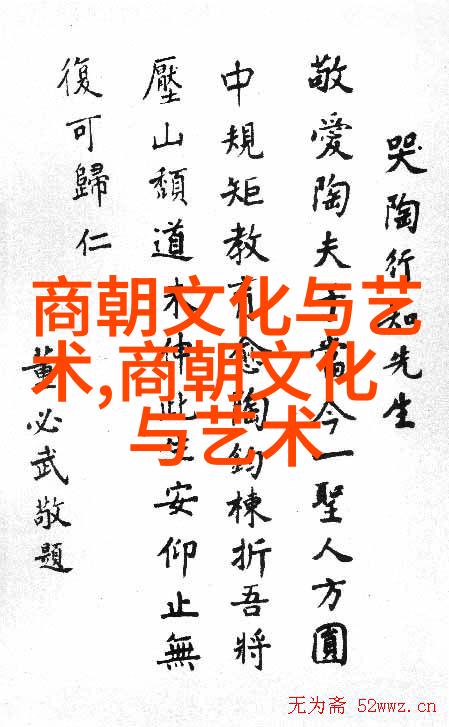 哭陶行知先生
敬愛陶夫子當今一聖人方圓
中規矩教育愈陶鈞棟折吾將
壓山頹道未伸此生安仰止無
復可歸仁
董必武敬題
商朝文化与艺
术,商朝文化
与艺术
无为斋 52wwz.cn